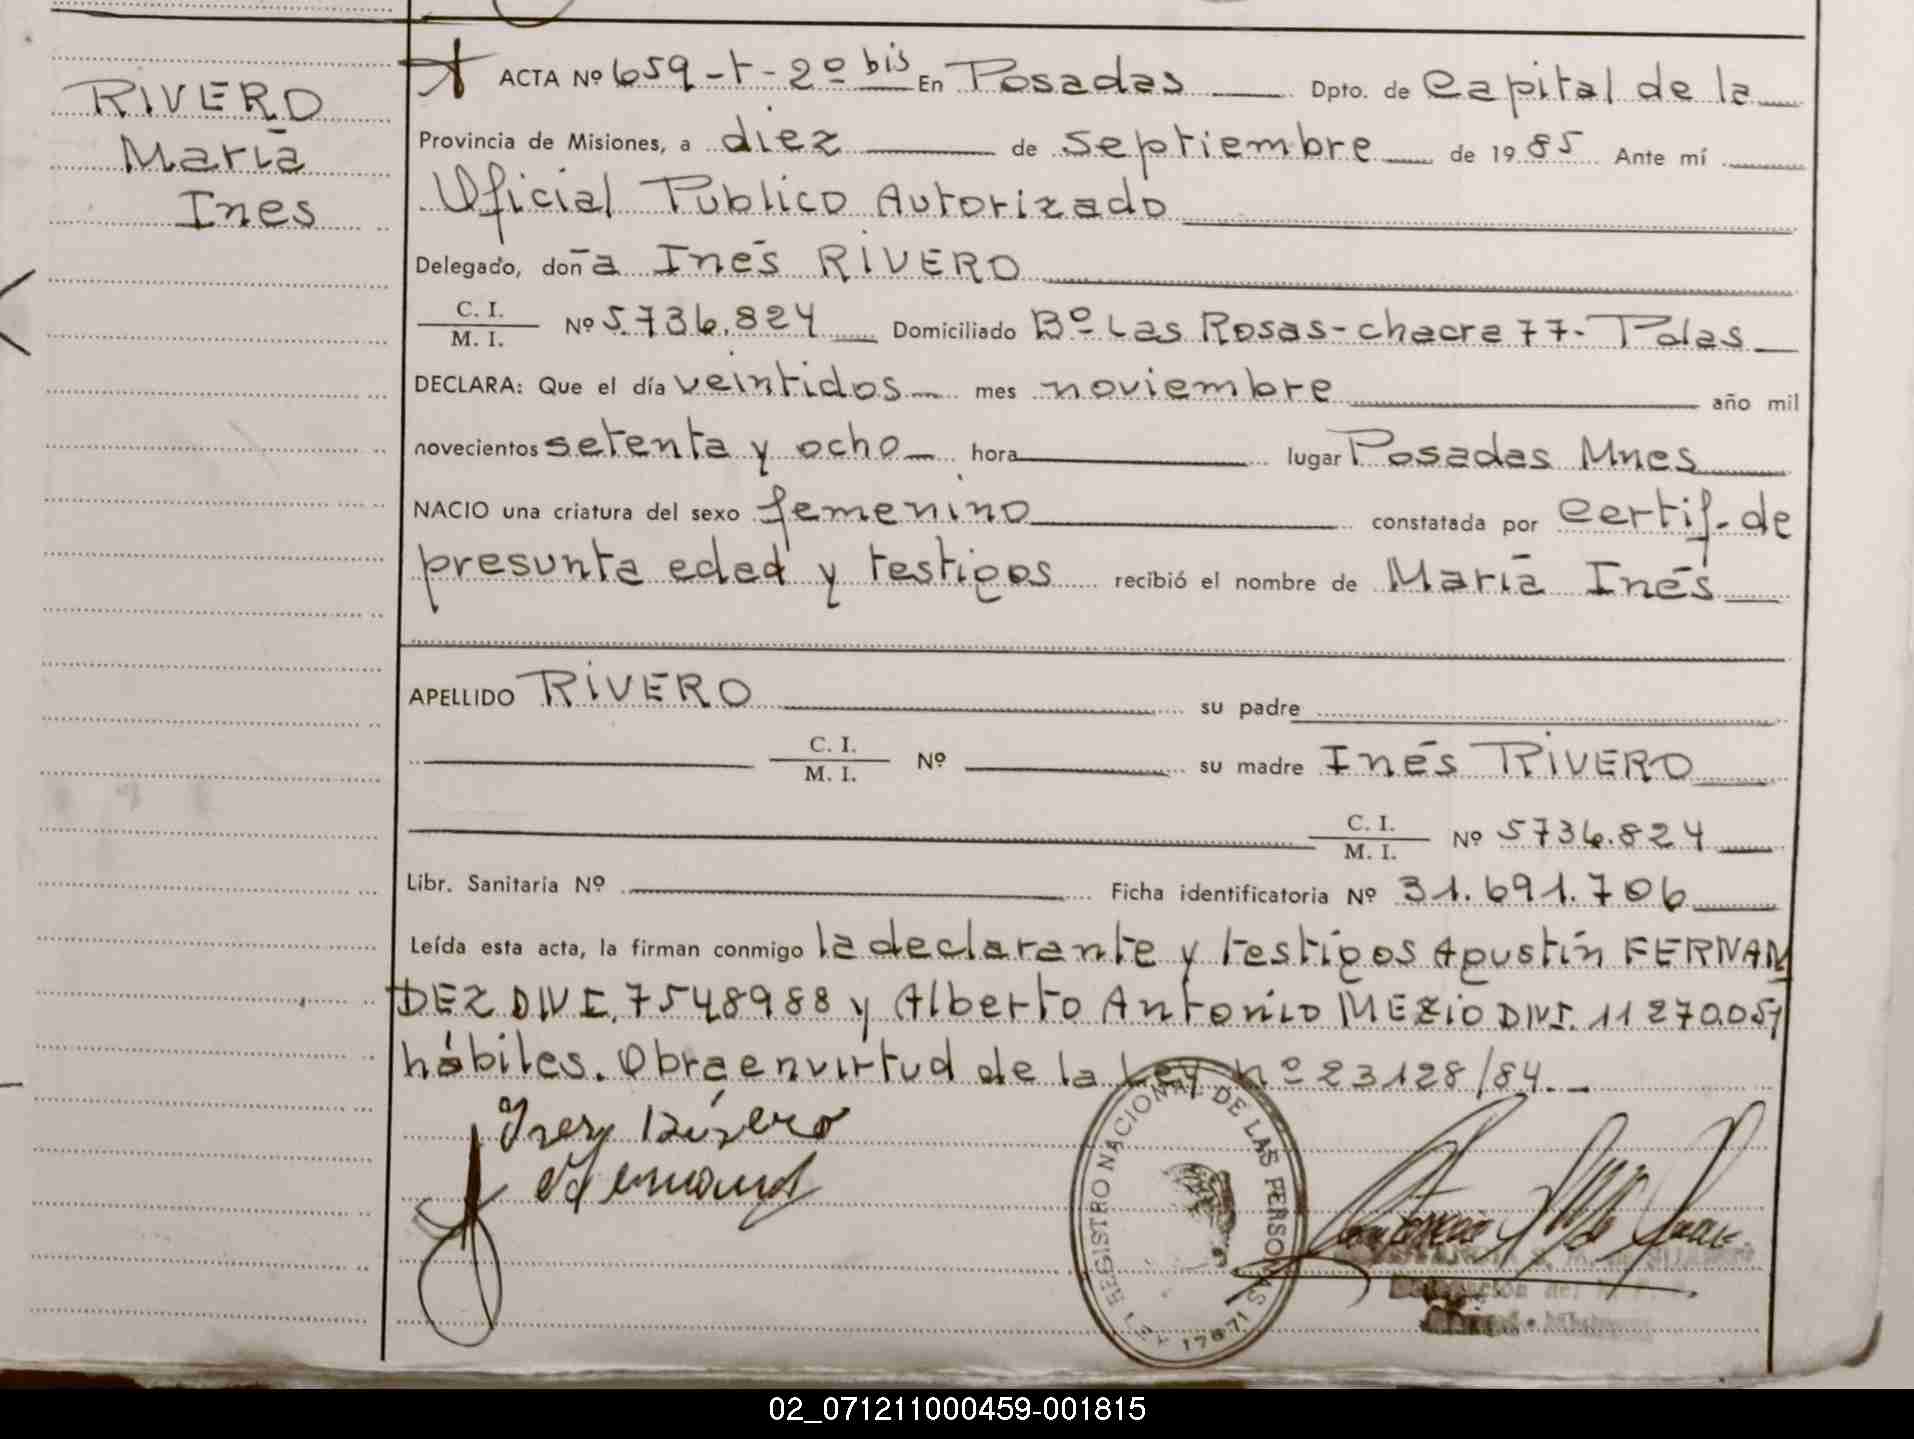 RIVERO
María
Ines
ACTA Nº 659-t-2º bis En Posadas Dpto. de Capital de la
Provincia de Misiones, a diez de septiembre de 1985 Ante mí
Oficial Publico Autorizado
Delegado, doña Inés RIVERO
C. I.
M. I. Nº 5.736.824 Domiciliado Bº Las Rosas-chacra 77-Pdas
DECLARA: Que el día veintidos mes noviembre año mil
novecientos setenta y ocho hora lugar Posadas Mnes
NACIO una criatura del sexo femenino constatada por certif. de
presunta edad y testigos recibió el nombre de María Inés
APELLIDO RIVERO su padre
C. I.
M. I. Nº su madre Inés RIVERO
C. I.
M. I. Nº 5736.824
Libr. Sanitaria Nº Ficha identificatoria Nº 31.691.706
Leída esta acta, la firman conmigo la declarante y testigos Agustín FERNAN
DEZ DNI. 7548988 y Alberto Antonio MEZIO DNI. 11270.051
hábiles. Obra en virtud de la Ley nº 23128/84.-
Ines Rivero
REGISTRO NACIONAL DE LAS PERSONAS
LEY 17671
02_071211000459-001815